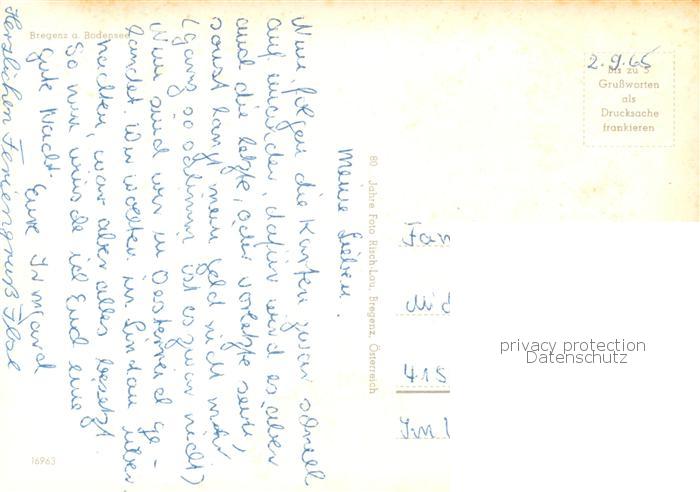 Bregenz a. Bodensee
2.9.65
Bis zu 5
Grußworten
als
Drucksache
frankieren
Meine Lieben.
Nun folgen die Karten zwar schnell
auf einander, dafür wird es aber
auch die letzte, oder vorletzte sein,
sonst langt mein Geld nicht mehr
(ganz so schlimm ist es zwar nicht)
Nun sind wir in Oesterreich ge-
landet. Wir wollten in Lindau über
nachten, war aber alles besetzt.
So nun wünsche ich Euch eine
gute Nacht. Eure Irmgard
Herzlichen Feriengruß Ilse
80 Jahre Foto Risch-Lau, Bregenz, Österreich
Fam
415
16963
privacy protection
Datenschutz